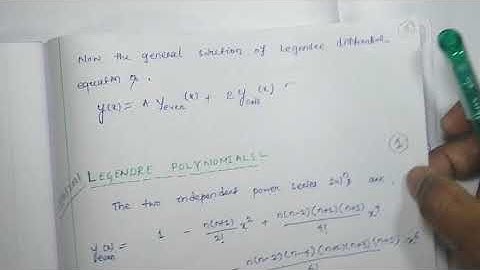 Now the general solution of Legendre differential
equation is.
y(x) = A y_even (x) + B y_odd (x)
LEGENDRE POLYNOMIALS
1
The two independent power series sol^n s are,
y_even (x) = 1 - n(n+1)/2! x^2 + n(n-2)(n+1)(n+3)/4! x^4
- n(n-2)(n-4)(n+1)(n+3)(n+5) x^6